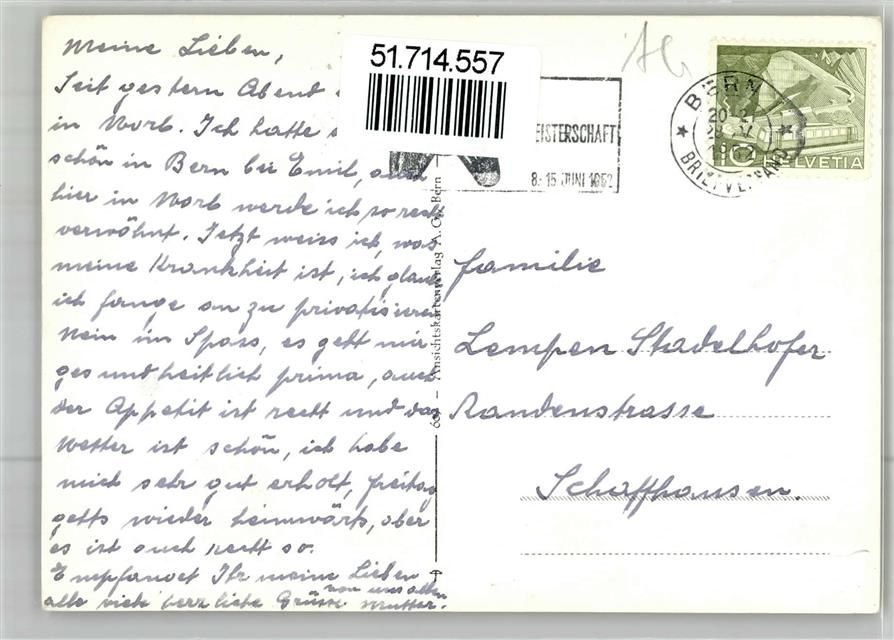 Meine Lieben,
Seit gestern Abend
in Worb. Ich hatte
schön in Bern bei Emil, auch
hier in Worb werde ich so recht
verwöhnt. Jetzt weiss ich, was
meine Krankheit ist, ich glaub
ich fange an zu privatisieren
Nein im Spass, es geht mir
gesundheitlich prima, auch
der Appetit ist recht und das
Wetter ist schön, ich habe
mich sehr gut erholt, freitag
gehts wieder heimwärts, aber
es ist auch recht so.
Empfanget Ihr meine Lieben
alle viele herzliche Grüsse von uns allen
Mutter.
51.714.557
EISTERSCHAFT
8.-15. JUNI 1952
BERN
20-21
1952
BRIEFVERSAND
10 HELVETIA
Ansichtskartenverlag A. G., Bern
Familie
Lempen Stadelhofer
Randenstrasse
Schaffhausen.